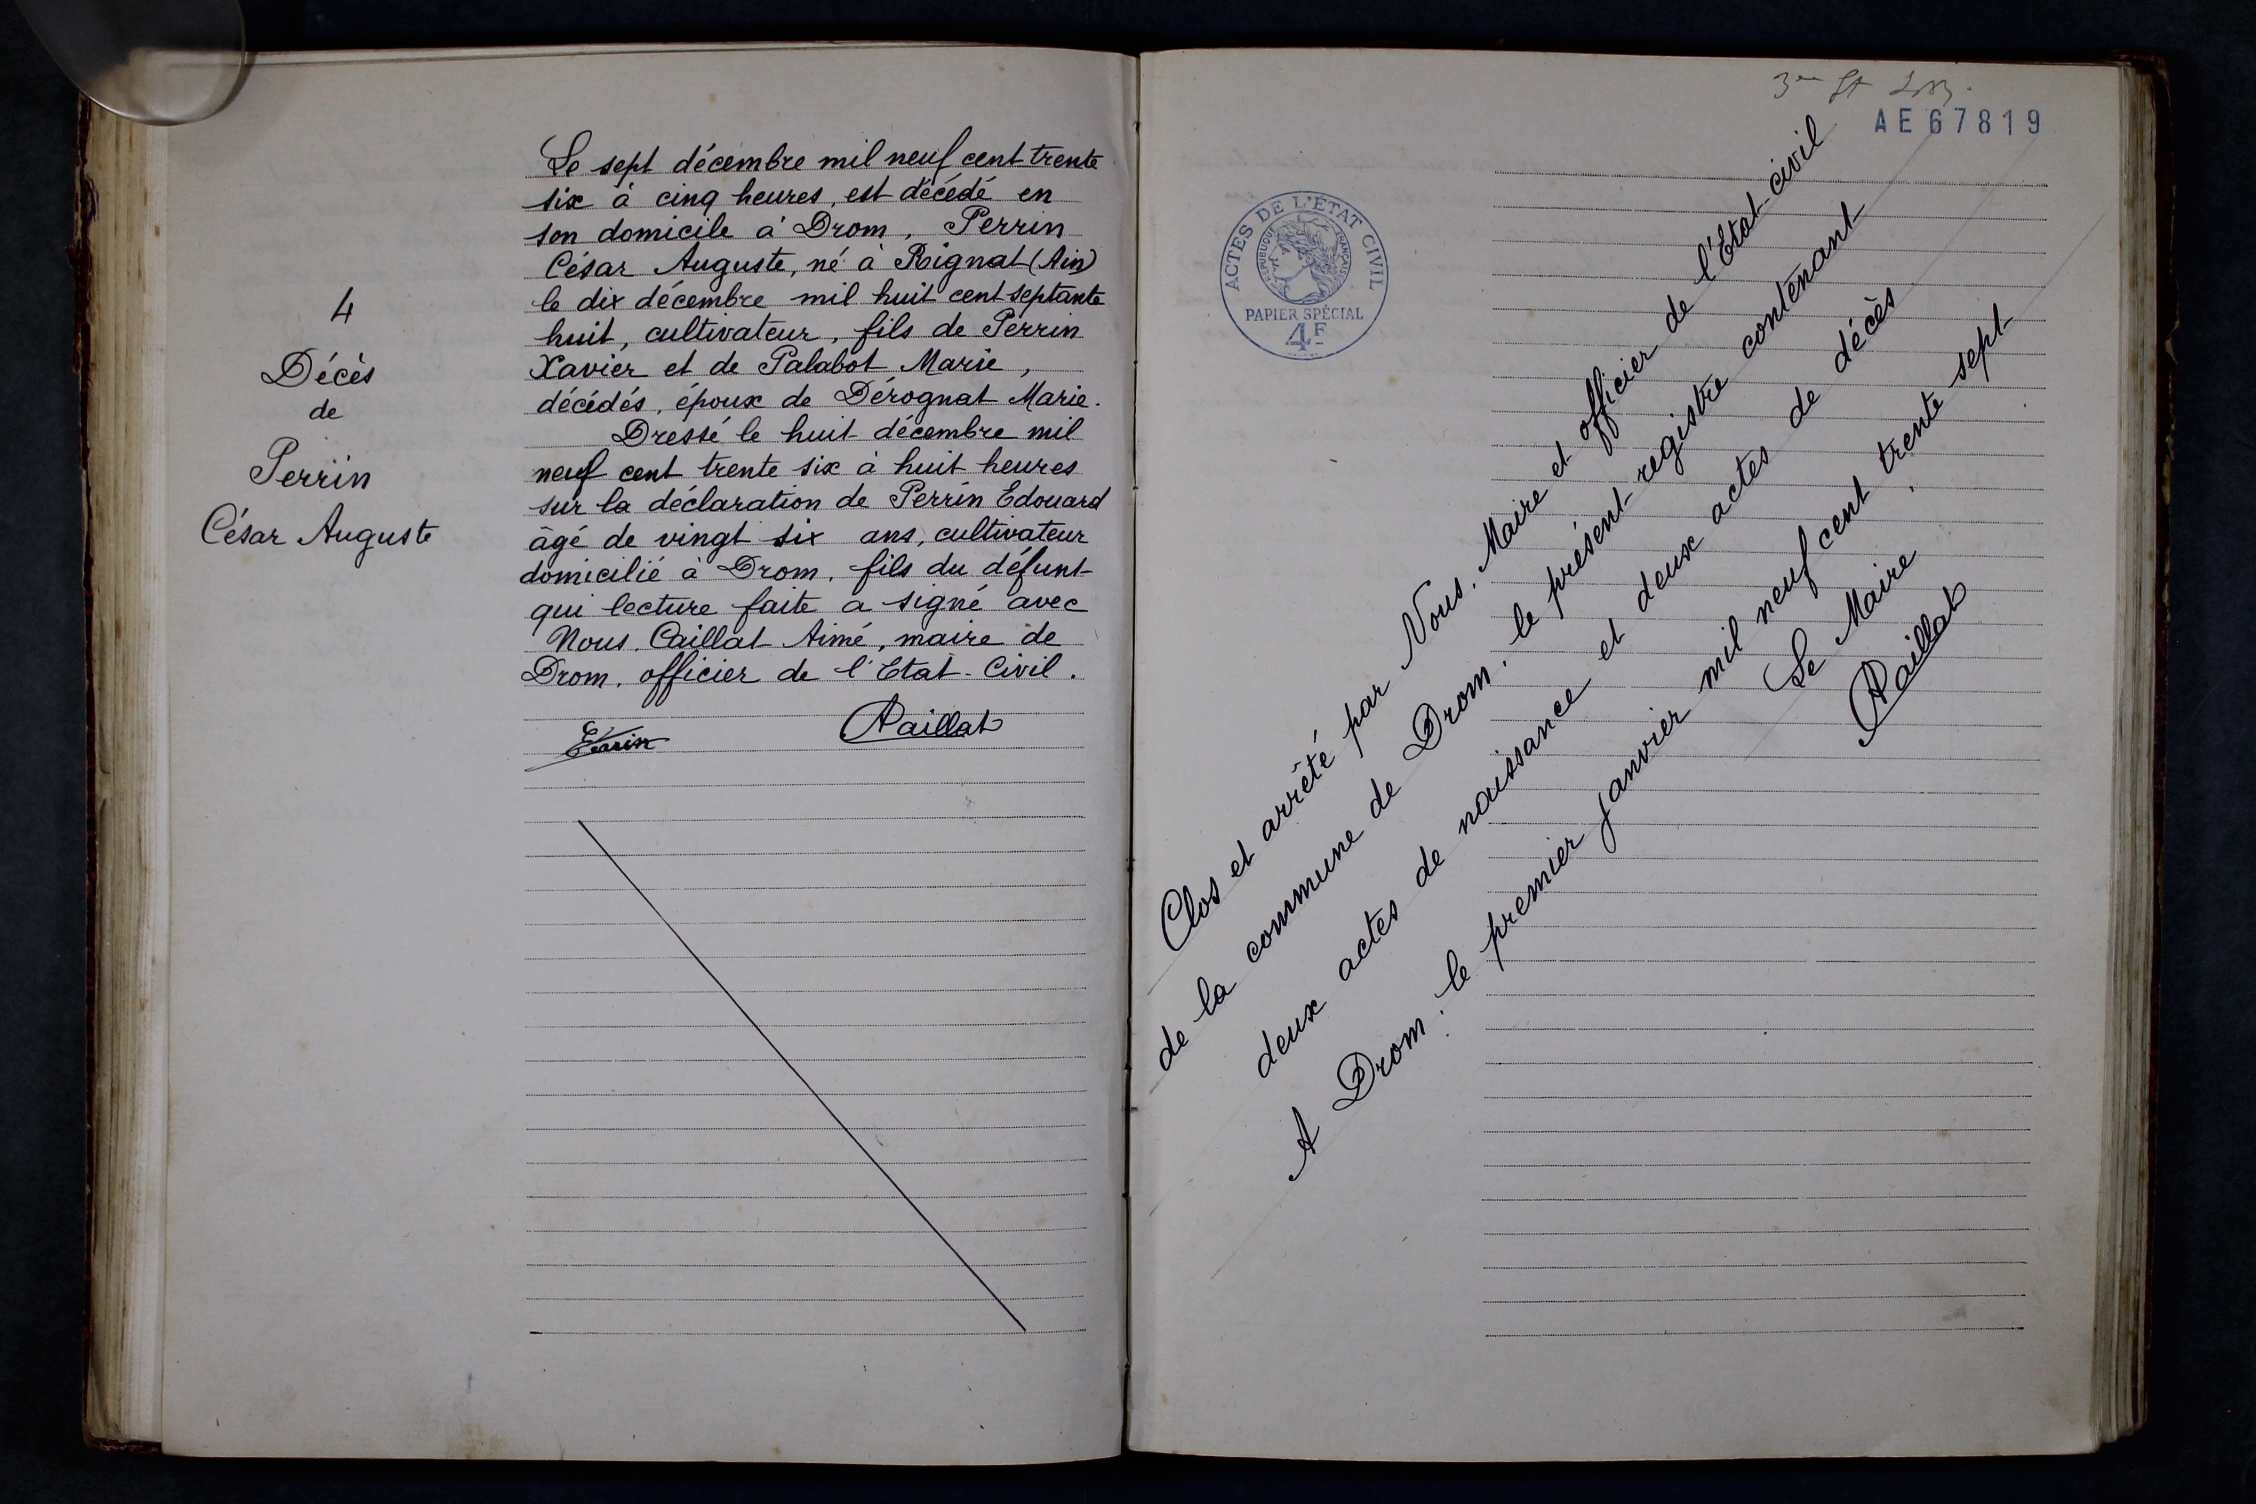 4
Décès
de
Perrin
César Auguste
Le sept décembre mil neuf cent trente
six à cinq heures, est décédé en
son domicile à Drom, Perrin
César Auguste, né à Rignat (Ain)
le dix décembre mil huit cent septante
huit, cultivateur, fils de Perrin
Xavier et de Palabot Marie,
décédés, époux de Dérognat Marie.
Dressé le huit décembre mil
neuf cent trente six à huit heures
sur la déclaration de Perrin Edouard
âgé de vingt six ans, cultivateur
domicilié à Drom, fils du défunt
qui lecture faite a signé avec
Nous, Caillat Aimé, maire de
Drom, officier de l'Etat-Civil.
ACaillat
AE67819
ACTES DE L'ÉTAT CIVIL
RÉPUBLIQUE FRANÇAISE
PAPIER SPÉCIAL
4F
Clos et arrêté par Nous, Maire et officier de l'Etat-civil
de la commune de Drom, le présent registre contenant
deux actes de naissance et deux actes de décès
A Drom, le premier janvier mil neuf cent trente sept
Le Maire
ACaillat